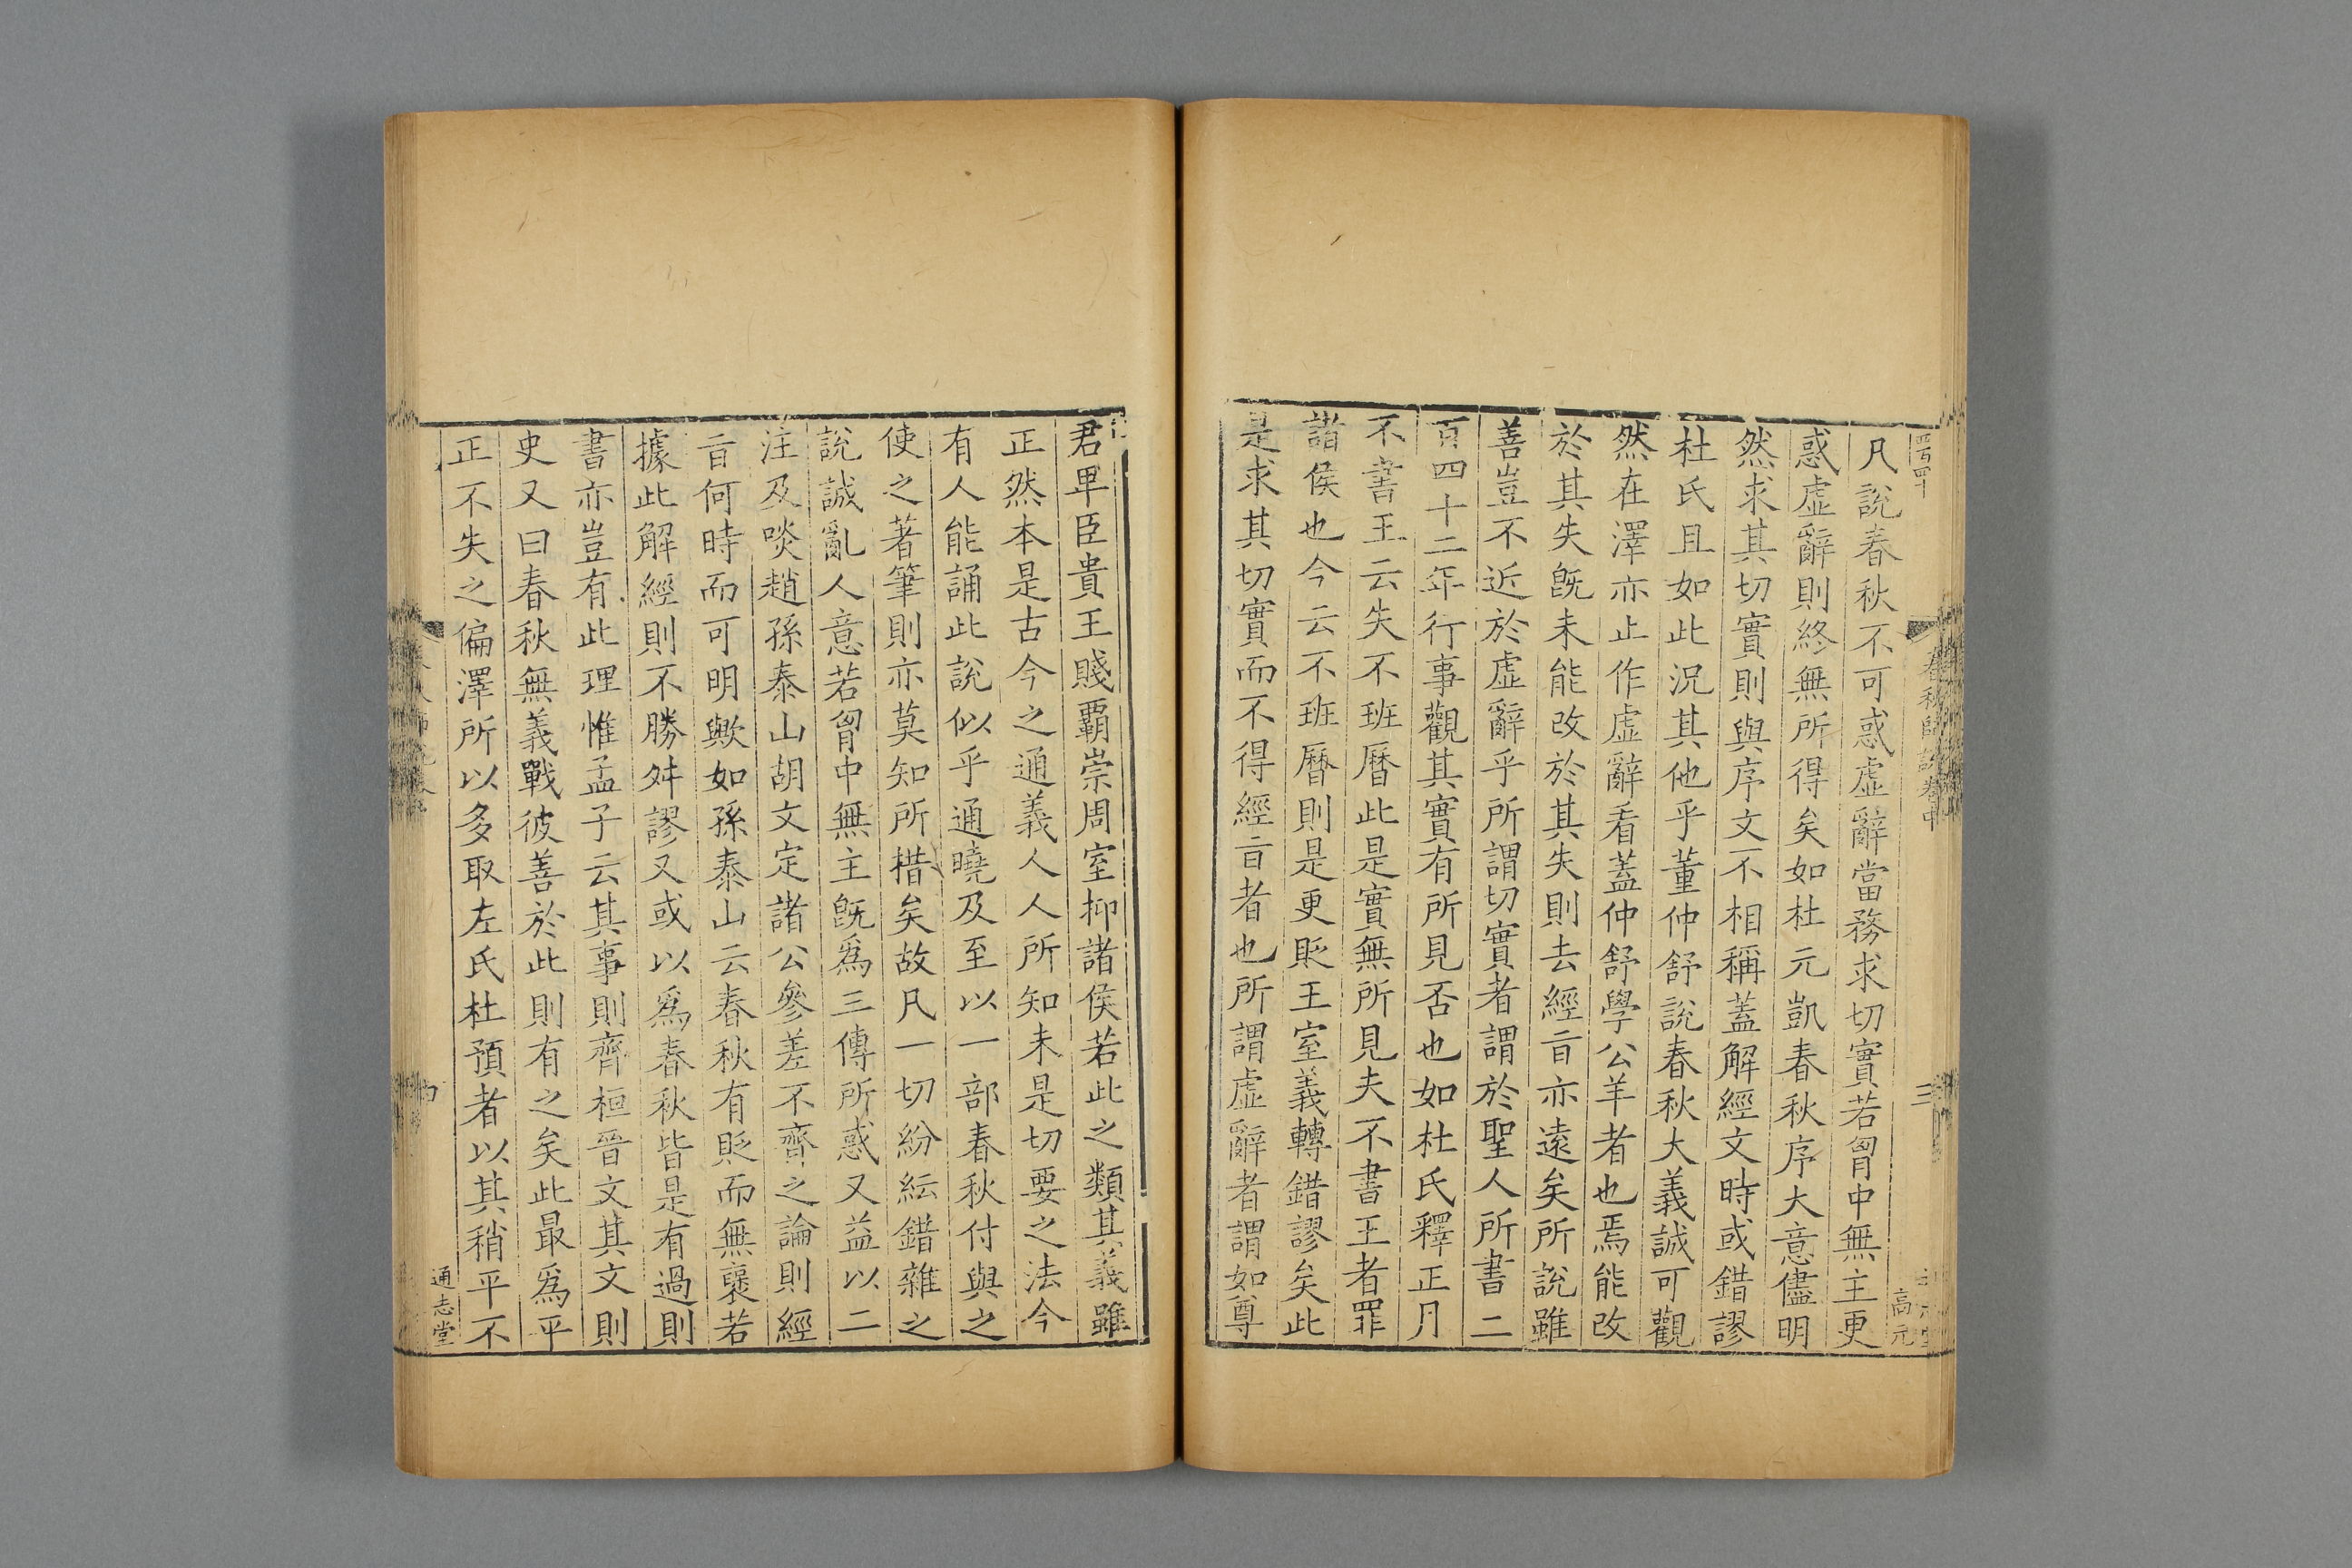 凡說春秋不可惑虛辭當務求切實若胷中無主更
惑虛辭則終無所得矣如杜元凱春秋序大意儘明
然求其切實則與序文不相稱蓋解經文時或錯謬
杜氏且如此況其他乎董仲舒說春秋大義誠可觀
然在澤亦止作虛辭看蓋仲舒學公羊者也焉能改
於其失旣未能改於其失則去經㫖亦遠矣所說雖
善豈不近於虛辭乎所謂切實者謂於聖人所書二
百四十二年行事觀其實有所見否也如杜氏釋正月
不書王云失不班曆此是實無所見夫不書王者罪
諸侯也今云不班曆則是更貶王室義轉錯謬矣此
是求其切實而不得經㫖者也所謂虛辭者謂如尊
君卑臣貴王賤霸崇周室抑諸侯若此之類其義雖
正然本是古今之通義人人所知未是切要之法今
有人能誦此說似乎通曉及至以一部春秋付與之
使之著筆則亦莫知所措矣故凡一切紛紜錯雜之
說誠亂人意若胷中無主旣爲三傳所惑又益以二
注及啖趙孫泰山胡文定諸公參差不齊之論則經
㫖何時而可明歟如孫泰山云春秋有貶而無襃若
據此解經則不勝舛謬又或以爲春秋皆是有過則
書亦豈有此理惟孟子云其事則齊桓晉文其文則
史又曰春秋無義戰彼善於此則有之矣此最爲平
正不失之偏澤所以多取左氏杜預者以其稍平不
春秋師說卷中
三
高元
通志堂